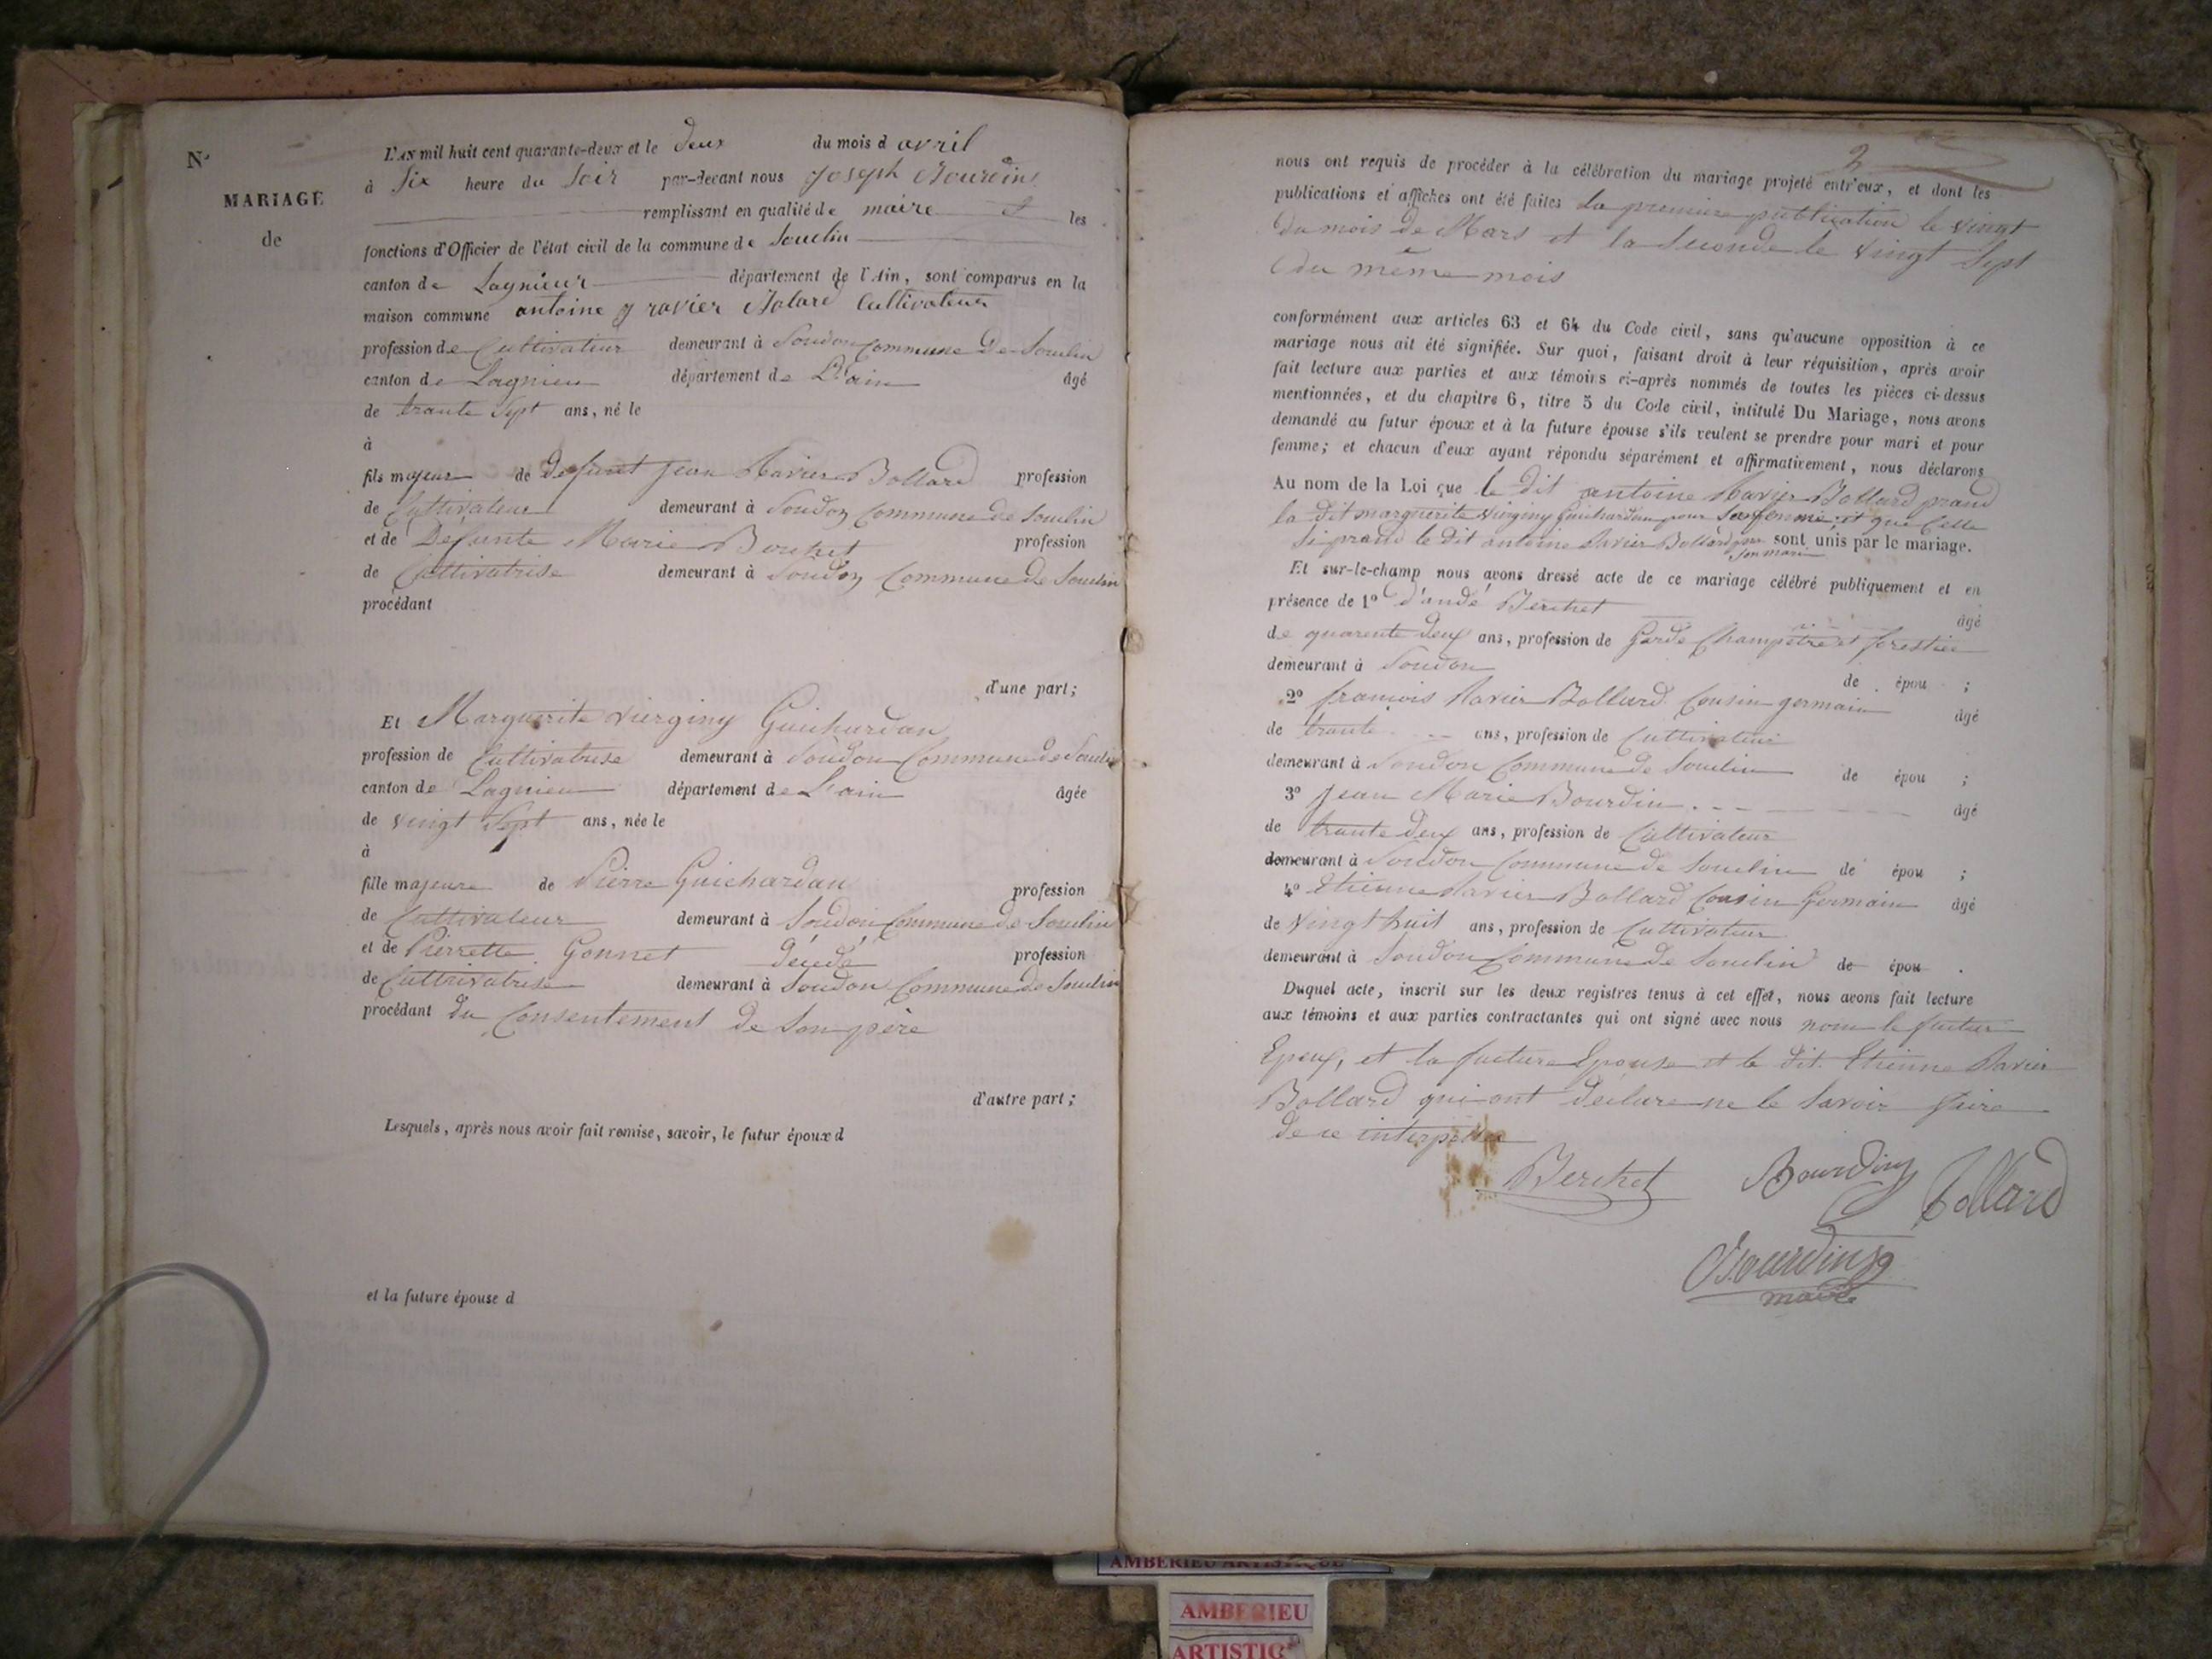 N°
MARIAGE
de
L'AN mil huit cent quarante-deux et le deux du mois d avril
à Six heure du Soir par-devant nous joseph Bourdin
remplissant en qualité de maire les
fonctions d'Officier de l'état civil de la commune de Souclin
canton de Lagnieur département de l'Ain, sont comparus en la
maison commune antoine ravier Bolard Cultivateur
profession de Cultivateur demeurant à Soudon Commune De Souclin
canton de Lagnieu département de L'ain âgé
de trante Sept ans, né le
à
fils majeur de Defunt jean Ravier Bollard profession
de Cultivateur demeurant à Soudon Commune de Souclin
et de Défunte Marie Berchet profession
de Cultivatrise demeurant à Soudon Commune de Souclin
procédant
d'une part;
Et Marguerite vierginy Guichardan
profession de Cultivatrise demeurant à Soudon Commune de Souclin
canton de Lagnieu département de L'ain âgée
de vingt Sept ans, née le
à
fille majeure de Pierre Guichardan profession
de Cultivateur demeurant à Soudon Commune de Souclin
et de Pierrette Gonnet décédé profession
de Cultivatrise demeurant à Soudon Commune de Souclin
procédant du Consentement de Son père
d'autre part;
Lesquels, après nous avoir fait remise, savoir, le futur époux d
et la future épouse d
2
nous ont requis de procéder à la célébration du mariage projeté entr'eux, et dont les
publications et affiches ont été faites La premiere publication le vingt
du mois de Mars et la Seconde le vingt Sept
du même mois
conformément aux articles 63 et 64 du Code civil, sans qu'aucune opposition à ce
mariage nous ait été signifiée. Sur quoi, faisant droit à leur réquisition, après avoir
fait lecture aux parties et aux témoins ci-après nommés de toutes les pièces ci-dessus
mentionnées, et du chapitre 6, titre 5 du Code civil, intitulé Du Mariage, nous avons
demandé au futur époux et à la future épouse s'ils veulent se prendre pour mari et pour
femme; et chacun d'eux ayant répondu séparément et affirmativement, nous déclarons
Au nom de la Loi que le dit antoine Ravier Bollard prand
la dit marguerite vierginy Guichardan pour Sa femme, et que Celle
Si prand le dit antoine Ravier Bollard pour sont unis par le mariage.
Son mari
Et sur-le-champ nous avons dressé acte de ce mariage célébré publiquement et en
présence de 1° d'andé Berchet âgé
de quarente deux ans, profession de Garde Champêtre et forestier
demeurant à Soudon de épou ;
2° francois Ravier Bollard Cousin germain âgé
de trante ans, profession de Cultivateur
demeurant à Soudon Commune de Souclin de épou ;
3° jean Marie Bourdin âgé
de trante deux ans, profession de Cultivateur
demeurant à Soudon Commune de Souclin de épou ;
4° Etienne Ravier Bollard Cousin Germain âgé
de Vingt huit ans, profession de Cultivateur
demeurant à Soudon Commune de Souclin de épou .
Duquel acte, inscrit sur les deux registres tenus à cet effet, nous avons fait lecture
aux témoins et aux parties contractantes qui ont signé avec nous non le futur
Epoux, et la future Epouse et le dit Etienne Ravier
Bollard qui ont déclare ne le Savoir faire
de ce interpellee
Berchet Bourdin Bollard
Bourdin
maire
AMBERIEU ARTISTIQUE
AMBERIEU
ARTISTIQ